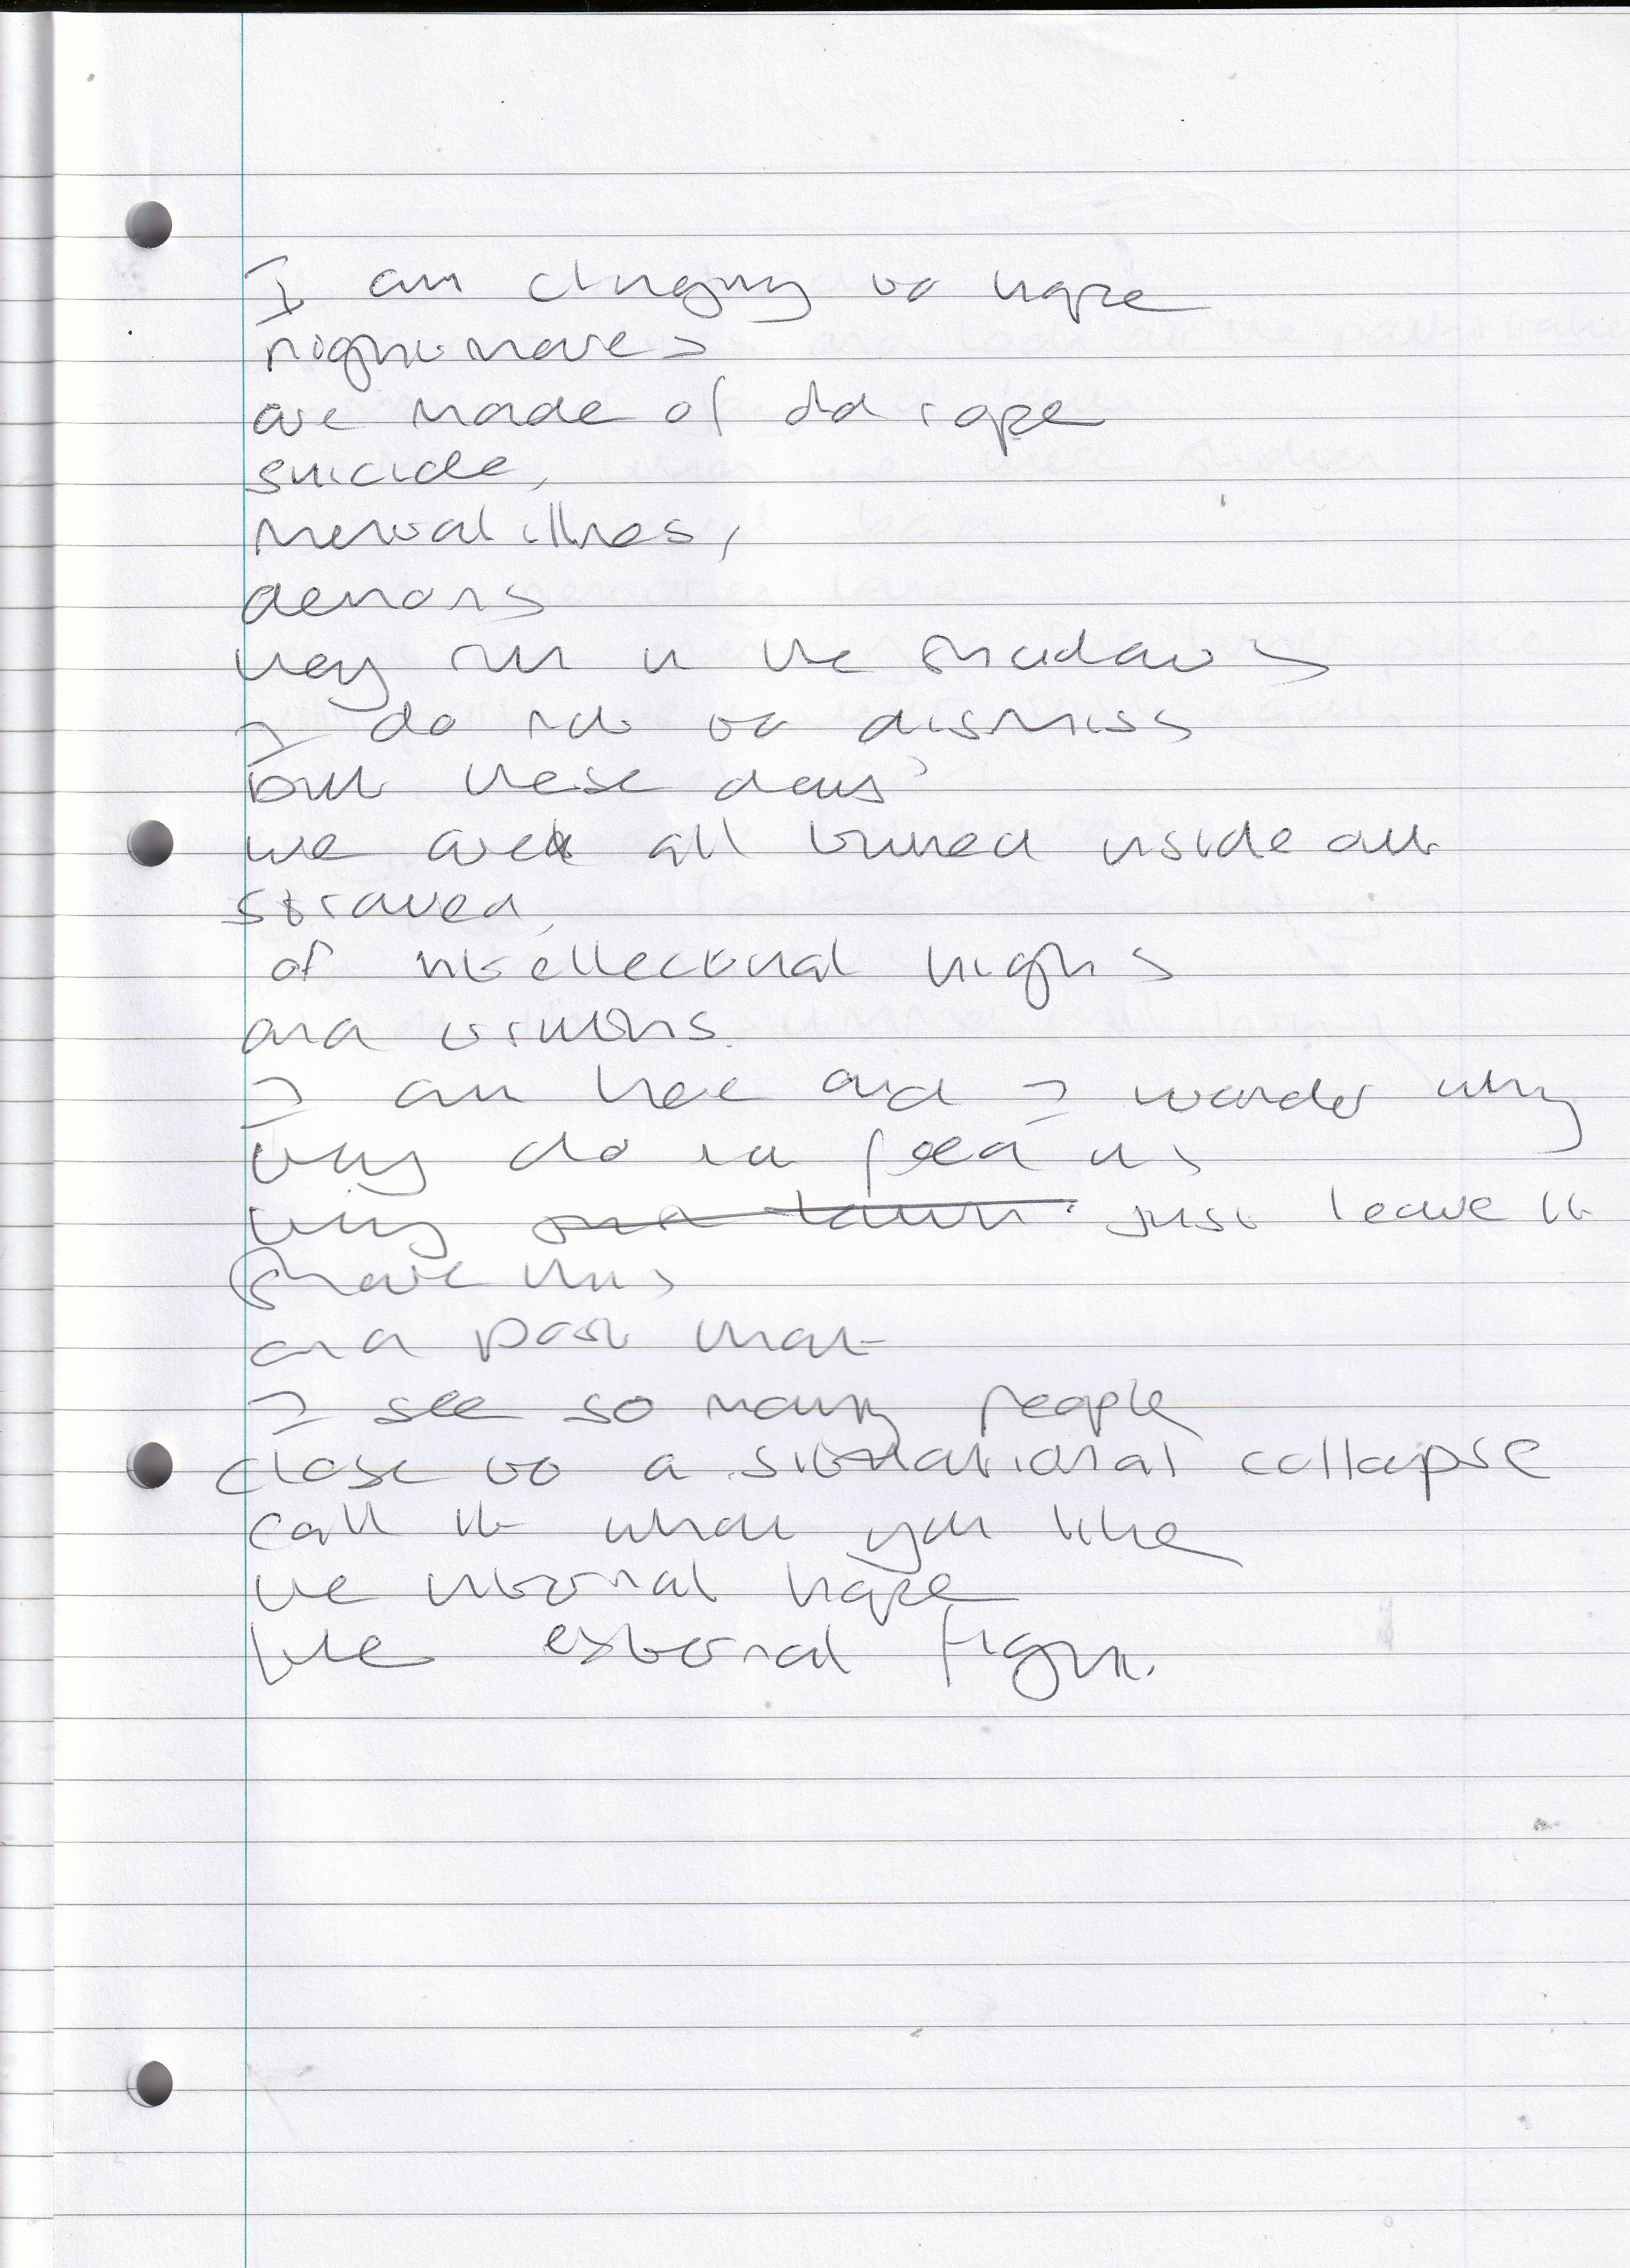 I am clinging to hope
nightmares
are made of old rope
suicide,
mental illnes,
demons
they run in the shadows
I do not to dismiss
but these days
we are all turned inside out
starved,
of intellectual highs
and truths.
I am here and I wonder why
why do we feed us
why just leave it
share this
and post that
I see so many people
close to a situational collapse
call it what you like
the internal hope
the external fight.